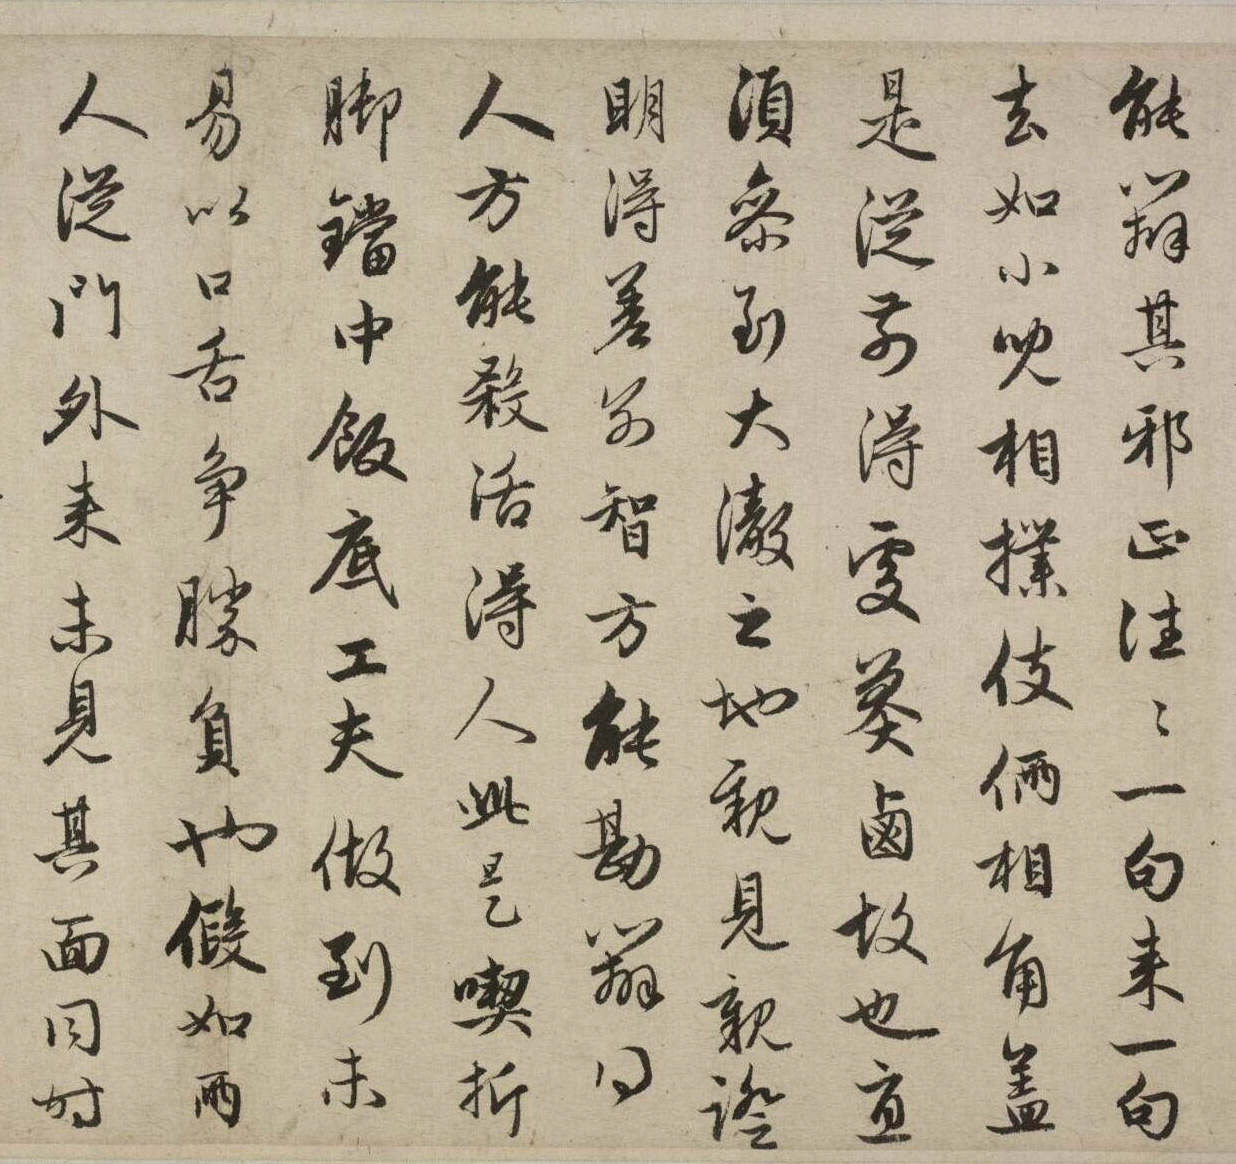 能辯其邪正往〻一句来一句
去如小児相撲伎俩相角盖
是從前得處莽鹵故也直
須参到大澈之地親見親證
明得差别智方能勘辯同
人方能殺活得人此是喫折
脚鐺中飯底工夫做到未
易以口舌争勝負也假如两
人從門外来未見其面同时